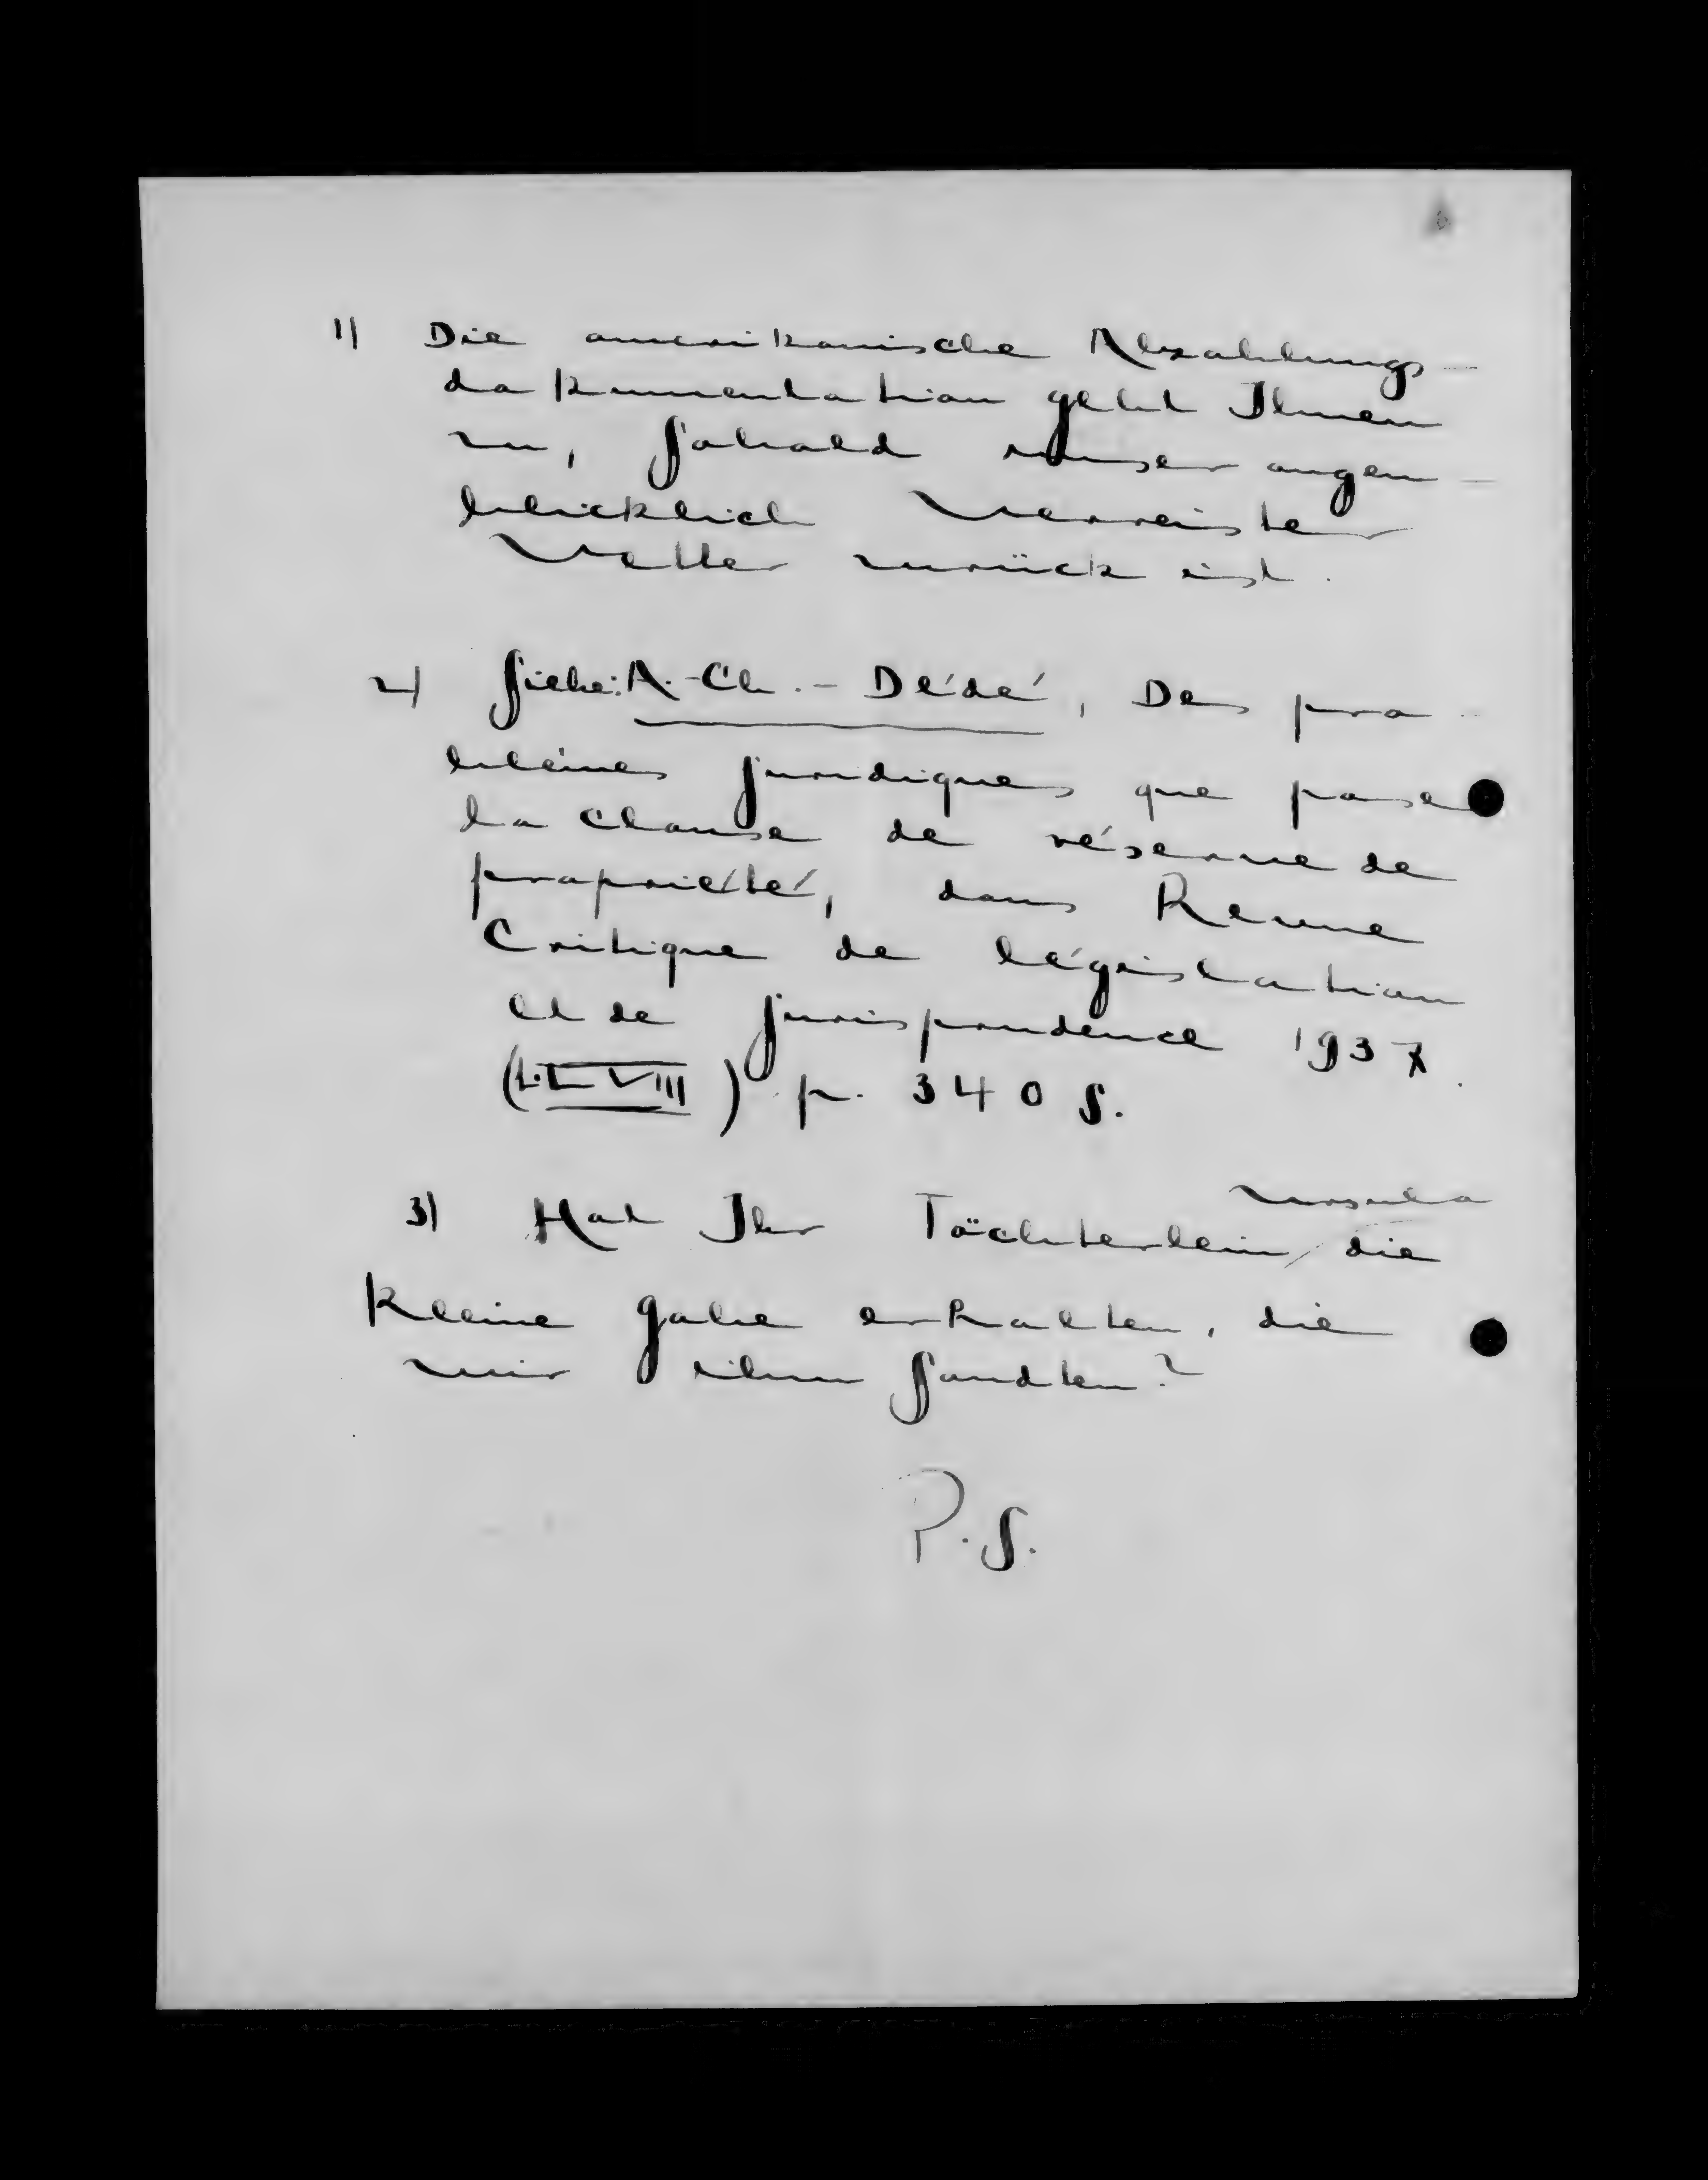 1) Die amerikanische Abzahlungs-
dokumentation geht Ihnen
zu, sobald unser augen-
blicklich verreister
Vetter zurück ist.
2) Siehe: A.-Ch.-Dédé, Des pro-
blèmes juridiques que pose
la Clause de réserve de
propriété, dans Revue
Critique de législation
et de jurisprudence 1937
(t. LVIII) p. 340 S.
3) Hat Ihr Töchterlein Ursula die
kleine Gabe erhalten, die
wir ihm sandten?
P.S.